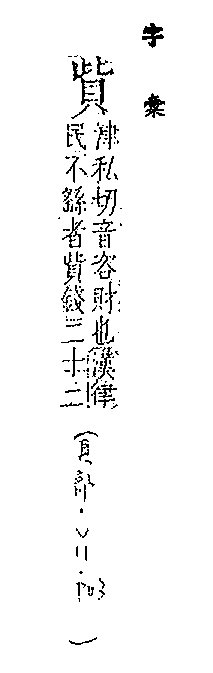 字彙
貲
津私切音咨財也漢律
民不繇者貲錢二十二
(貝部